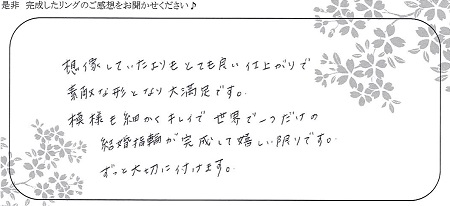 是非 完成したリングのご感想をお聞かせください♪
想像していたよりもとても良い仕上がりで
素敵な形となり大満足です。
模様も細かくキレイで世界で一つだけの
結婚指輪が完成して嬉しい限りです。
ずっと大切に付けます。